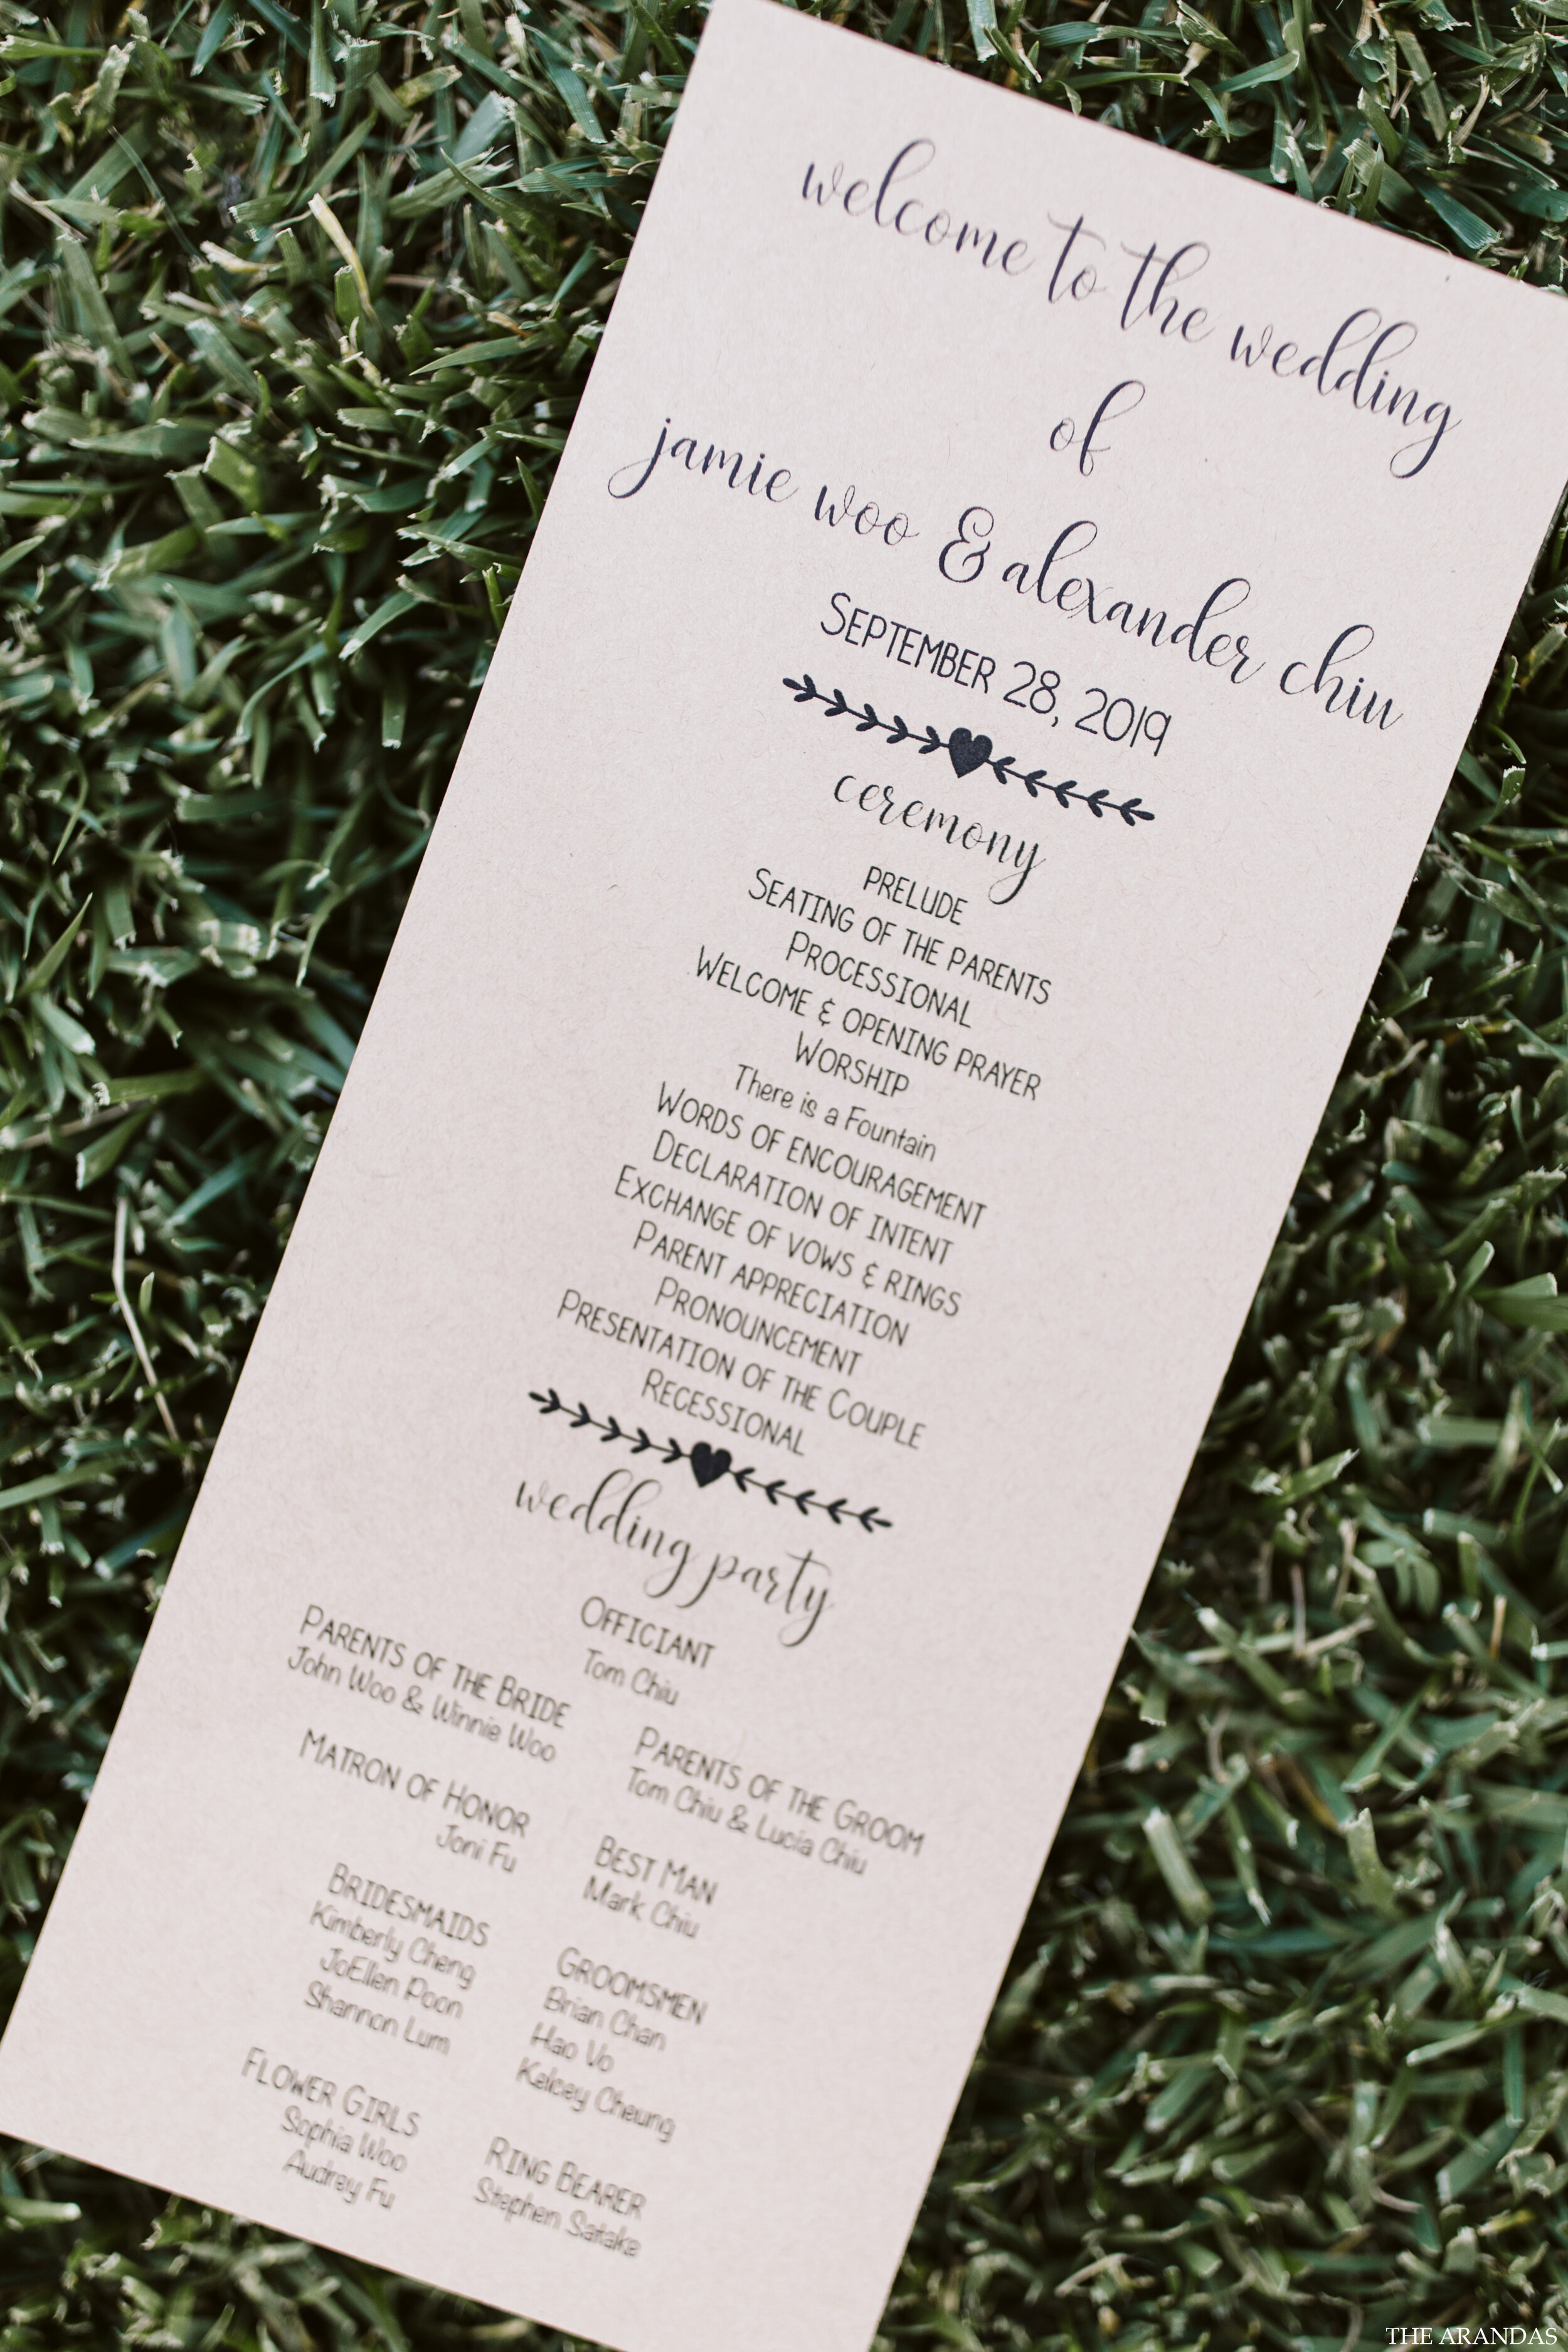 welcome to the wedding
of
jamie woo & alexander chiu
SEPTEMBER 28, 2019
ceremony
PRELUDE
SEATING OF THE PARENTS
PROCESSIONAL
WELCOME & OPENING PRAYER
WORSHIP
There is a Fountain
WORDS OF ENCOURAGEMENT
DECLARATION OF INTENT
EXCHANGE OF VOWS & RINGS
PARENT APPRECIATION
PRONOUNCEMENT
PRESENTATION OF THE COUPLE
RECESSIONAL
wedding party
OFFICIANT
Tom Chiu
PARENTS OF THE BRIDE
John Woo & Winnie Woo
MATRON OF HONOR
Joni Fu
BRIDESMAIDS
Kimberly Cheng
JoEllen Poon
Shannon Lum
FLOWER GIRLS
Sophia Woo
Audrey Fu
PARENTS OF THE GROOM
Tom Chiu & Lucia Chiu
BEST MAN
Mark Chiu
GROOMSMEN
Brian Chan
Hao Vo
Kelcey Cheung
RING BEARER
Stephen Satake
THE ARANDAS